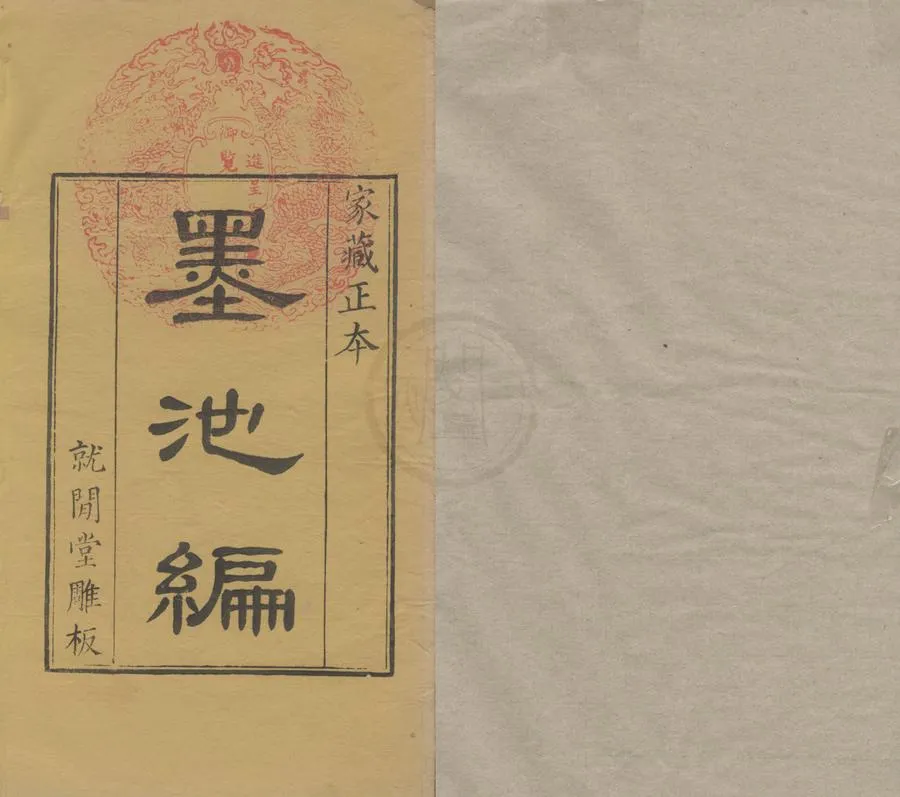 家藏正本
墨池編
就閒堂雕板
進呈
御覽